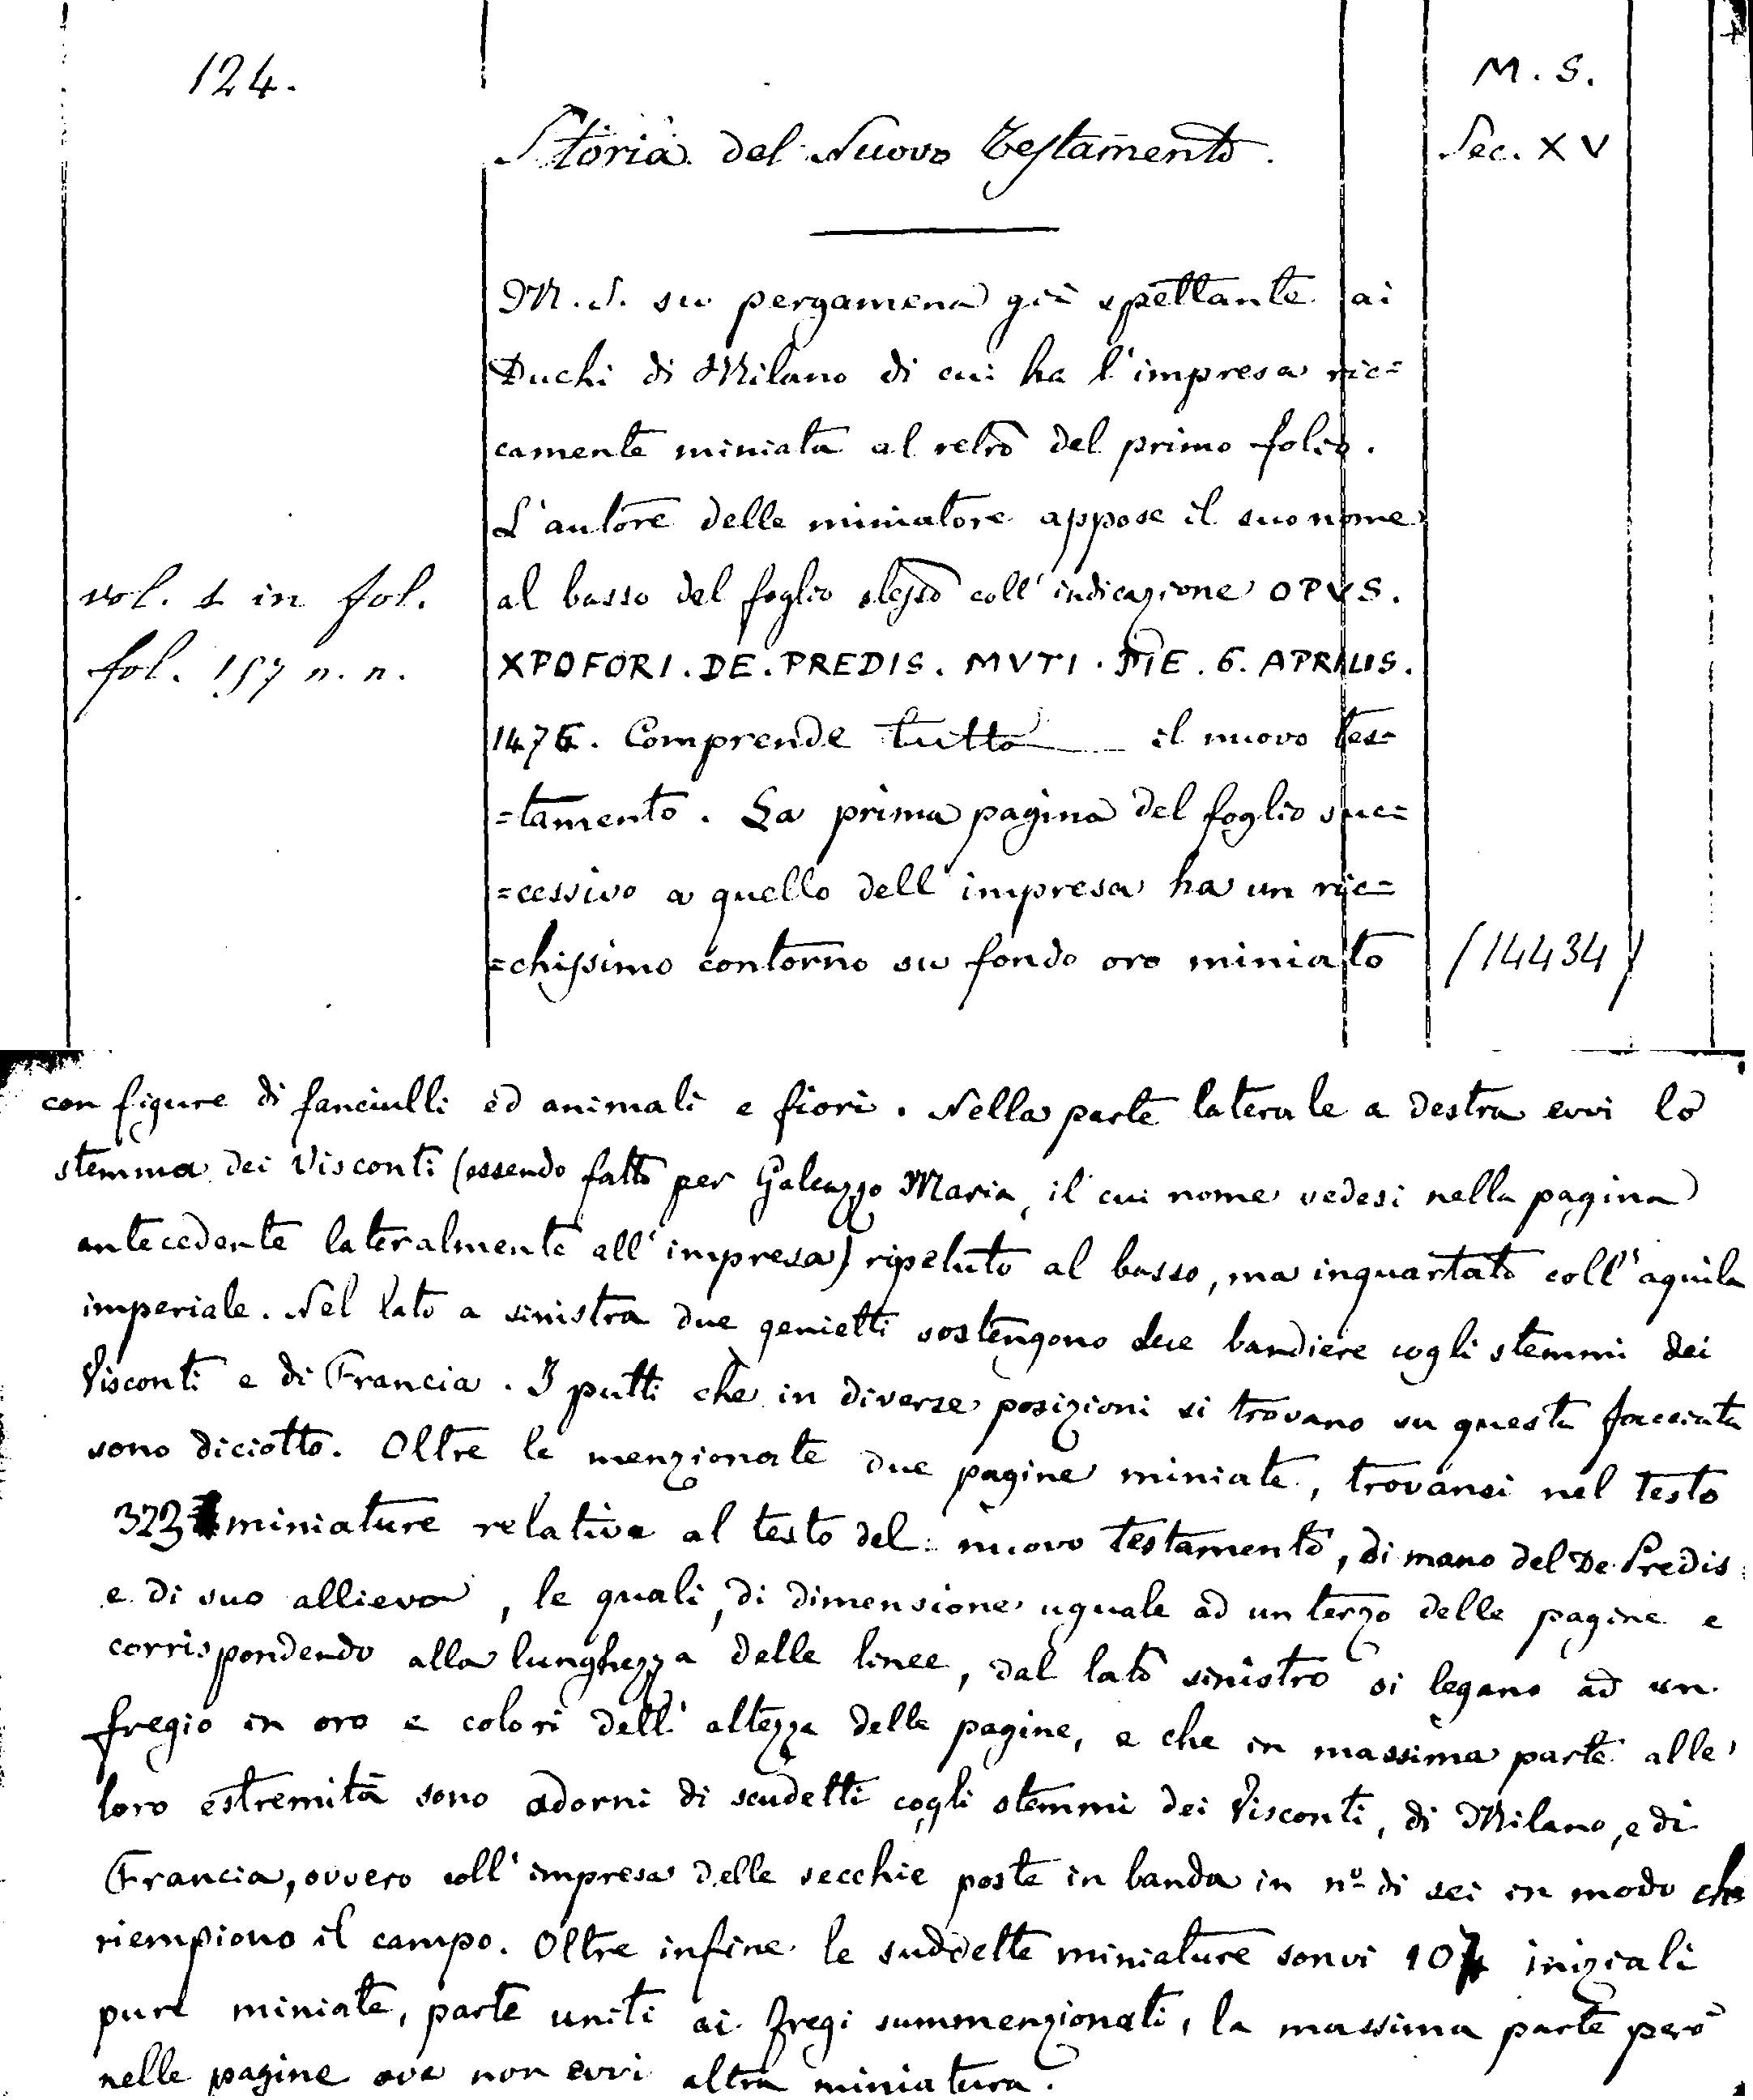 124.
M. S.
Storia del Nuovo Testamento.
Sec. XV
M. S. su pergamena già spettante ai
Duchi di Milano di cui ha l'impresa ric=
camente miniata al retro del primo folio.
L'autore delle miniatore appose il suo nome
vol. 1 in fol.
al basso del foglio stesso coll' indicazione OPVS.
fol. 157 n. n.
XPOFORI. DE. PREDIS. MVTI. DIE. 6. APRILIS.
1476. Comprende tutto il nuovo tes=
=tamento. La prima pagina del foglio suc=
=cessivo a quello dell' impresa ha un ric=
=chissimo contorno su fondo oro miniato
(14434)
con figure di fanciulli ed animali e fiori. Nella parte laterale a destra evvi lo
stemma dei Visconti (essendo fatto per Galeazzo Maria, il cui nome vedesi nella pagina
antecedente lateralmente all' impresa) ripetuto al basso, ma inquartato coll' aquila
imperiale. Nel lato a sinistra due genietti sostengono due bandiere cogli stemmi dei
Visconti e di Francia. I putti che in diverse posizioni si trovano su questa facciata
sono diciotto. Oltre le menzionate due pagine miniate, trovansi nel testo
323 miniature relative al testo del nuovo testamento, di mano del De Predis
e di suo allievo, le quali, di dimensione uguale ad un terzo delle pagine e
corrispondendo alla lunghezza delle linee, dal lato sinistro si legano ad un
fregio in oro e colori dell' altezza delle pagine, e che in massima parte alle
loro estremità sono adorni di scudetti cogli stemmi dei Visconti, di Milano, e di
Francia, ovvero coll' impresa delle secchie poste in banda in nº di sei in modo che
riempiono il campo. Oltre infine le suddette miniature sonvi 107 iniziali
pure miniate, parte uniti ai fregi summenzionati, la massima parte però
nelle pagine ove non evvi altra miniatura.